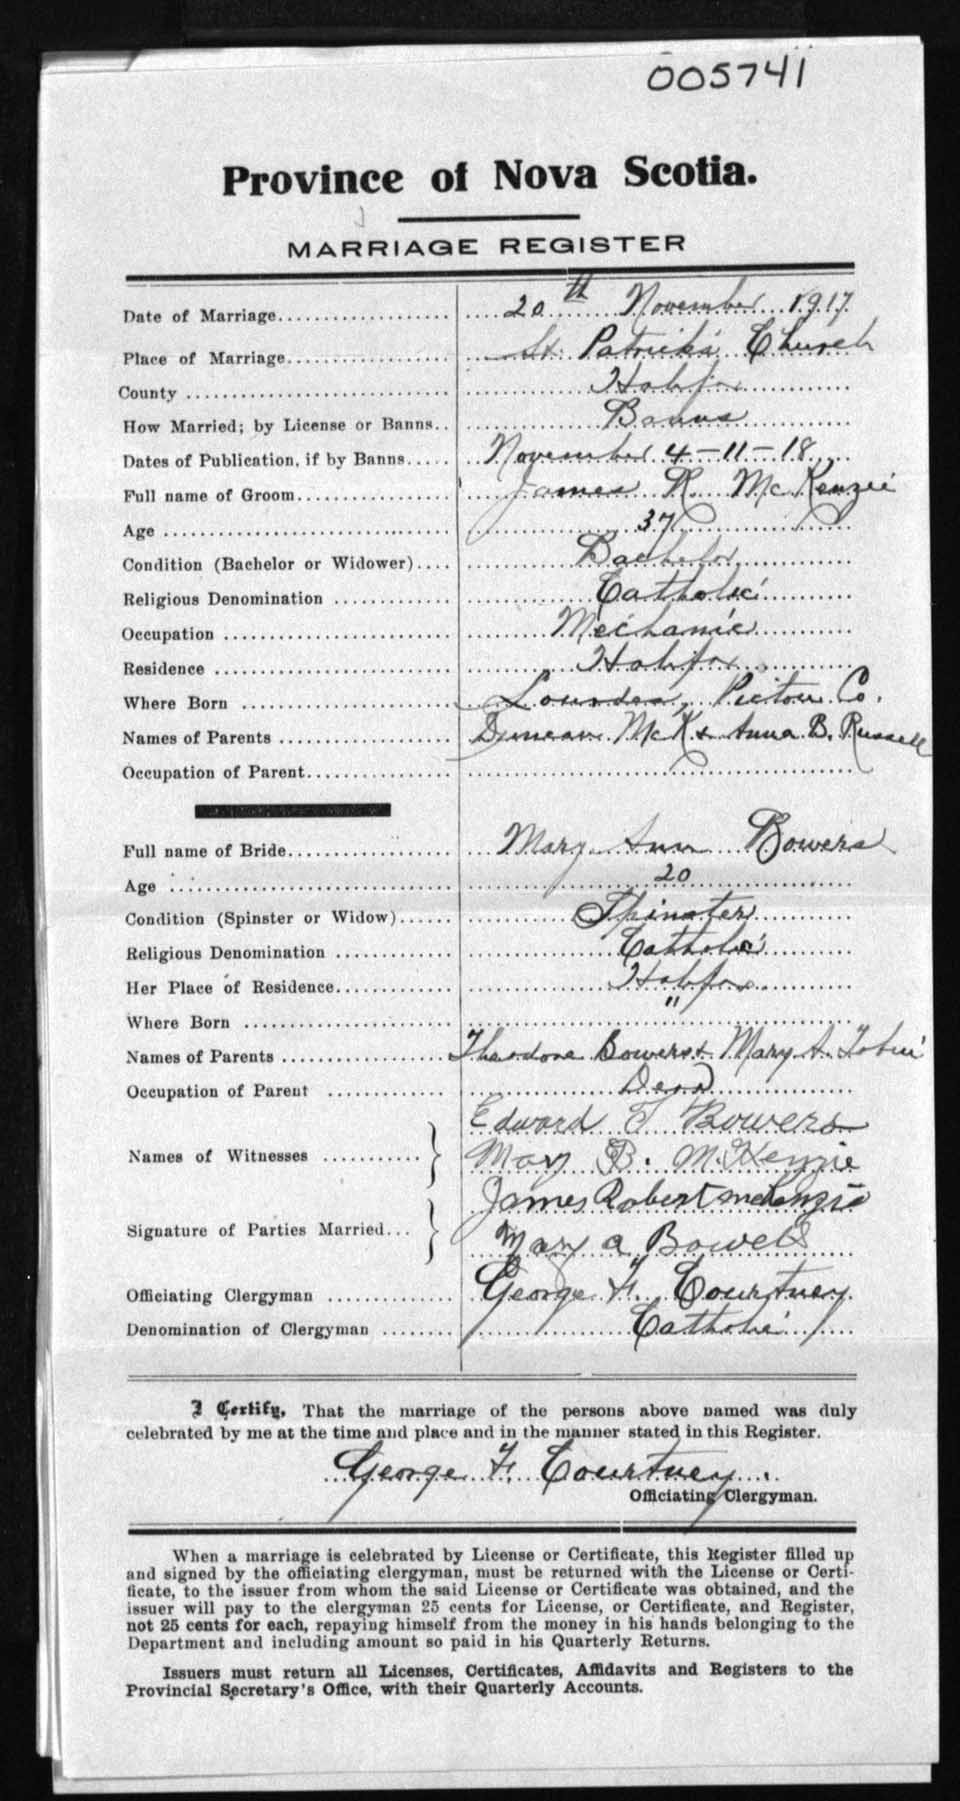 005741
Province of Nova Scotia.
MARRIAGE REGISTER
Date of Marriage.................. 20th November 1917
Place of Marriage................. St. Patrick's Church
County ............................ Halifax
How Married; by License or Banns.. Banns
Dates of Publication, if by Banns..... November 4-11-18
Full name of Groom................ James R. McKenzie
Age ............................ 37
Condition (Bachelor or Widower).... Bachelor
Religious Denomination ........... Catholic
Occupation ...................... Mechanic
Residence ....................... Halifax
Where Born ..................... Lourdes, Pictou Co.
Names of Parents ................ Duncan McK & Anna B. Russell
Occupation of Parent..............
Full name of Bride............... Mary Ann Bowers
Age ........................... 20
Condition (Spinster or Widow)...... Spinster
Religious Denomination ........... Catholic
Her Place of Residence............ Halifax
Where Born ..................... "
Names of Parents ................ Theodore Bowers & Mary A. Tobin
Occupation of Parent ............ Dead
Edward T Bowers
Names of Witnesses ........... } Mary B. McKenzie
James Robert McKenzie
Signature of Parties Married... } Mary A Bowers
Officiating Clergyman ............ George F. Courtney
Denomination of Clergyman ........ Catholic
I Certify, That the marriage of the persons above named was duly
celebrated by me at the time and place and in the manner stated in this Register.
George F. Courtney
Officiating Clergyman.
When a marriage is celebrated by License or Certificate, this Register filled up
and signed by the officiating clergyman, must be returned with the License or Certi-
ficate, to the issuer from whom the said License or Certificate was obtained, and the
issuer will pay to the clergyman 25 cents for License, or Certificate, and Register,
not 25 cents for each, repaying himself from the money in his hands belonging to the
Department and including amount so paid in his Quarterly Returns.
Issuers must return all Licenses, Certificates, Affidavits and Registers to the
Provincial Secretary's Office, with their Quarterly Accounts.